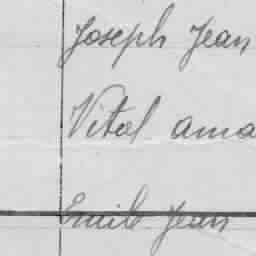 Joseph Jean
Vital ama
Emile Jean